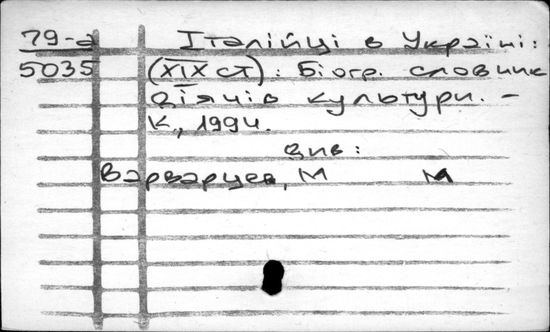 79-а Італійці в Україні:
5035 (XIX ст): Біогр. словник
діячів культури. –
К., 1994.
див:
Варварцев, М М